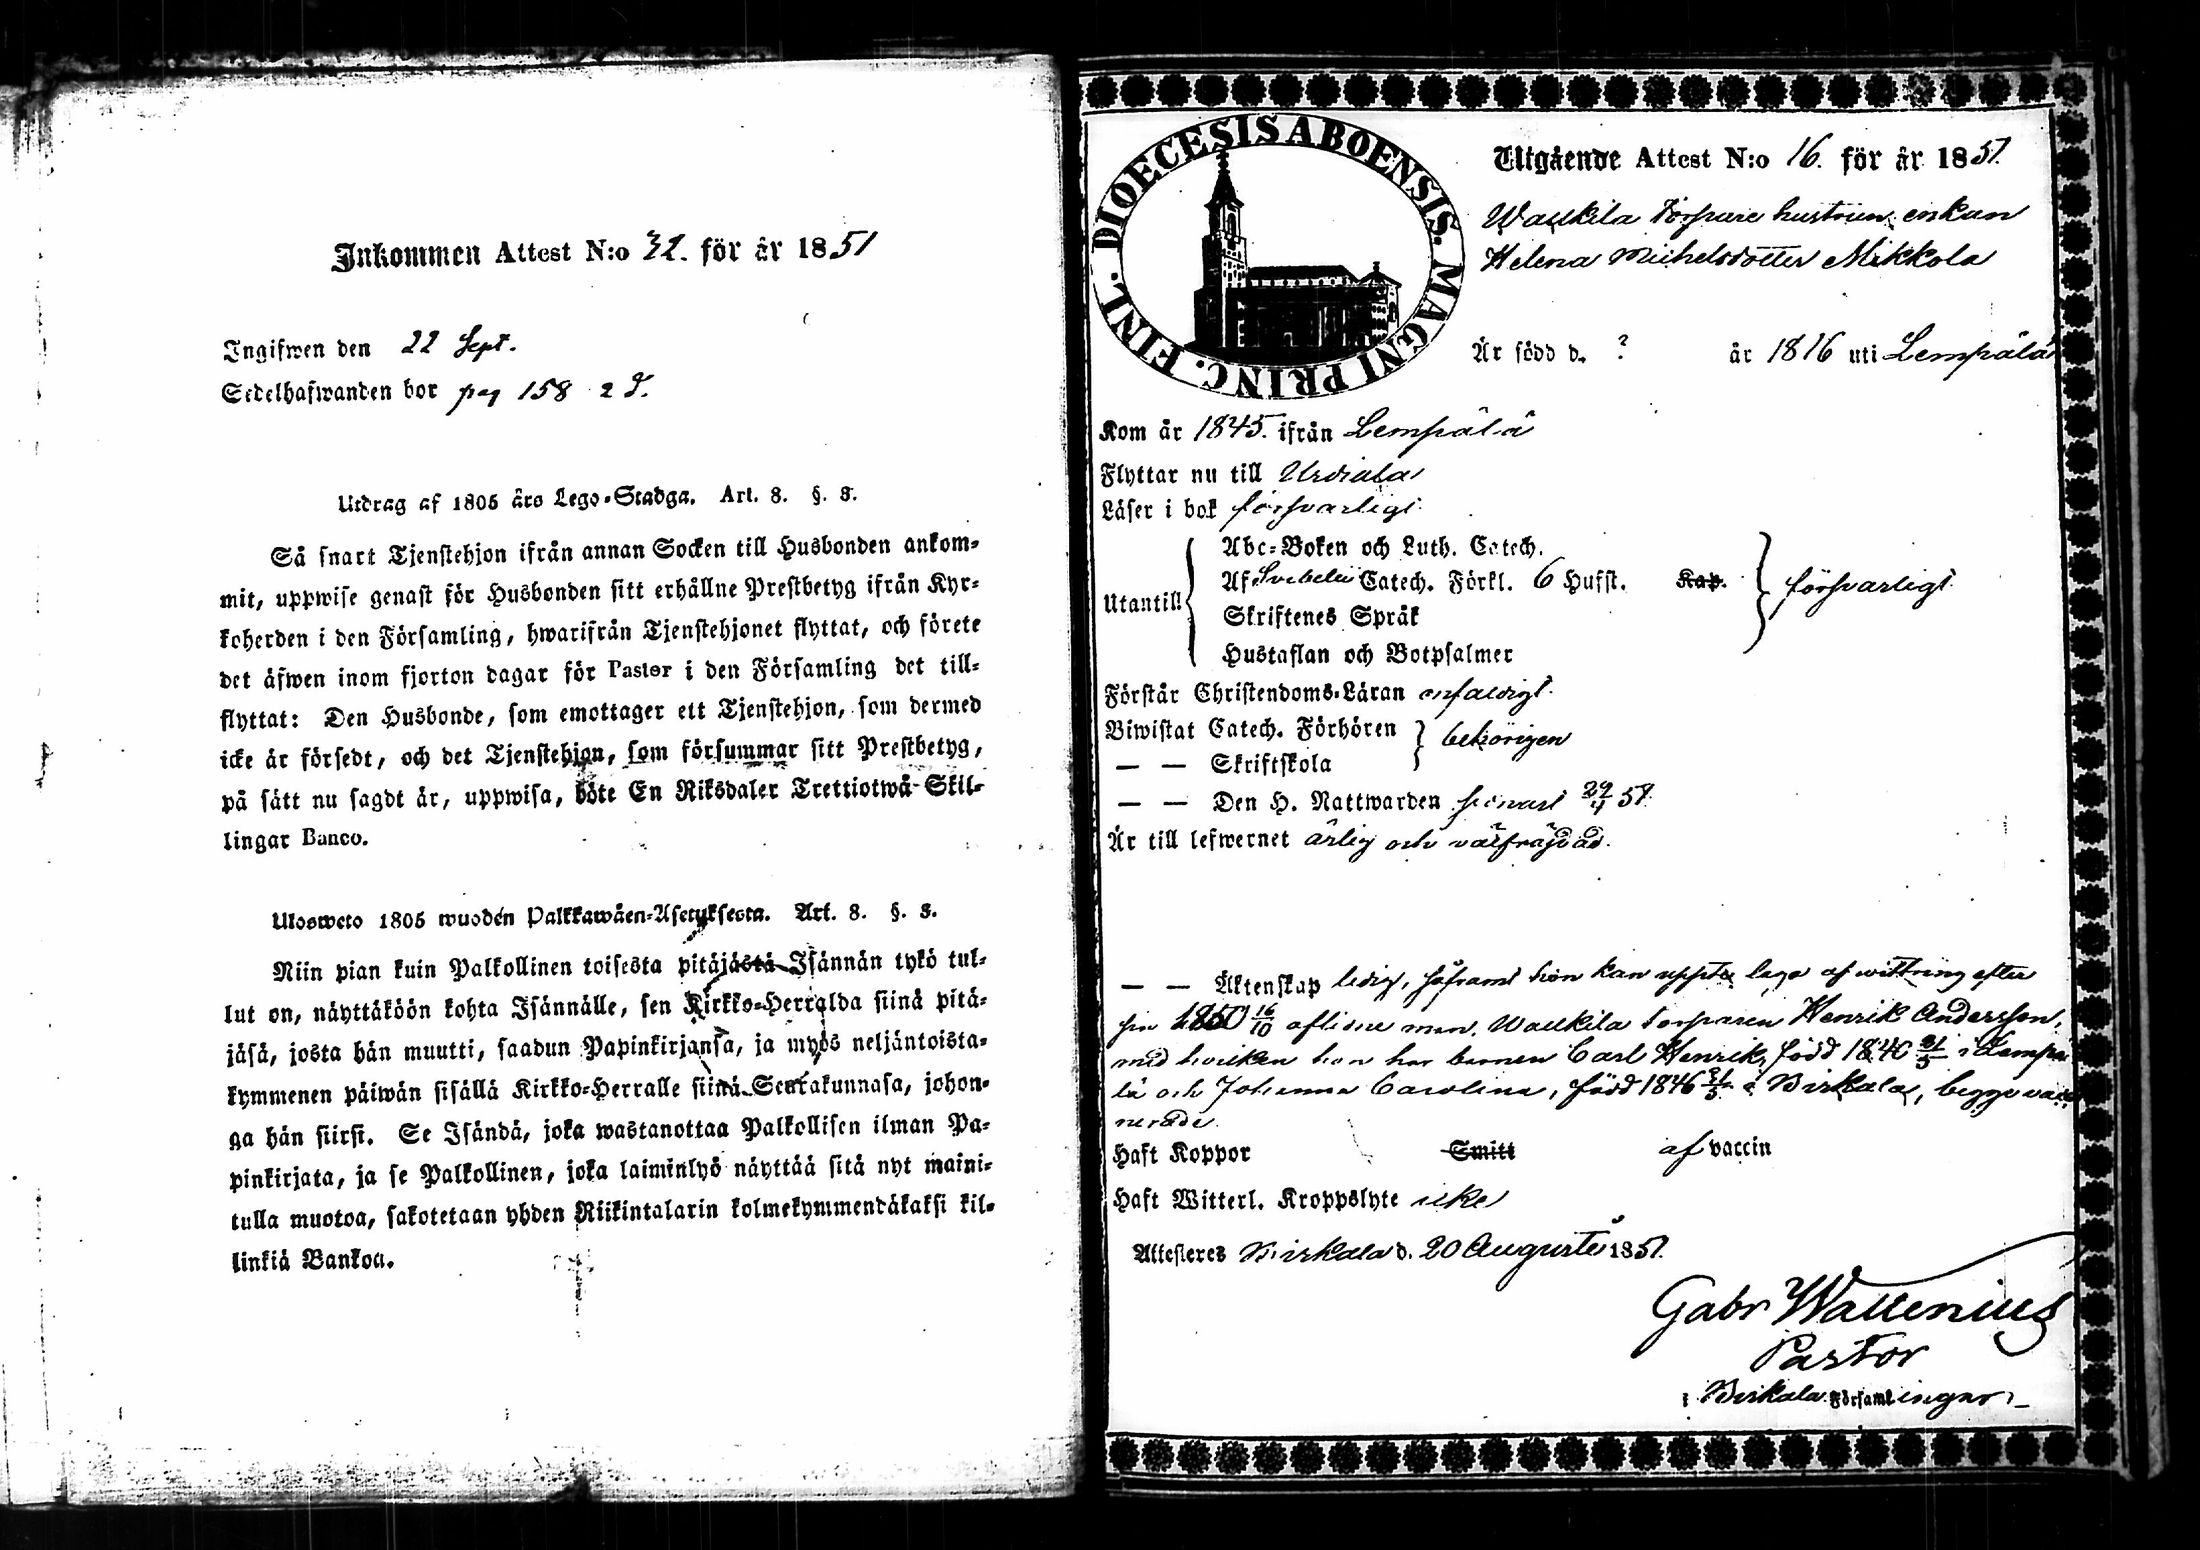 Inkommen Attest N:o 32. för år 1851
Ingifwen den 22 Sept.
Sedelhafwanden bor pag 158
Utdrag af 1805 års Lego-Stadga. Art. 8. §. 3.
Så snart Tjenstehjon ifrån annan Socken till Husbonden ankom-
mit, uppwise genast för Husbonden sitt erhållne Prestbetyg ifrån Kyr-
koherden i den Församling, hwarifrån Tjenstehjonet flyttat, och förete
det äfwen inom fjorton dagar för Pastor i den Församling det till-
flyttat: Den Husbonde, som emottager ett Tjenstehjon, som dermed
icke är försedt, och det Tjenstehjon, som försummar sitt Prestbetyg,
på sätt nu sagdt är, uppwisa, böte En Riksdaler Trettiotwå Skil-
lingar Banco.
Ulosweto 1805 wuoden Palkkawäen-Asetuksesta. Art. 8. §. 3.
Niin pian kuin Palkollinen toisesta pitäjästä Isännän tykö tul-
lut on, näyttäköön kohta Isännälle, sen Kirkko-Herralda siinä pitä-
jäsä, josta hän muutti, saadun Papinkirjansa, ja myös neljäntoista-
kymmenen päiwän sisällä Kirkko-Herralle siinä Seurakunnasa, johon-
ga hän siirsi. Se Isändä, joka wastanottaa Palkollisen ilman Pa-
pinkirjata, ja se Palkollinen, joka laiminlyö näyttää sitä nyt maini-
tulla muotoa, sakotetaan yhden Riikintalarin kolmekymmendäkaksi kil-
linkiä Bankoa.
DIOECESIS ABOENSIS. MAGNI PRINC. FINL.
Utgående Attest N:o 16. för år 1851.
Waukila torpare hustrun enkan
Helena Michelsdotter Mikkola
Är född d. ? år 1816 uti Lempälä
Kom år 1845. ifrån Lempälä
Flyttar nu till Urdiala
Läser i bok försvarligt
Utantill
Abc-Boken och Luth. Catech.
Af Svebelii Catech. Förkl. 6 Hufst. Kap.
Skriftenes Språk
Hustaflan och Botpsalmer
försvarligt
Förstår Christendoms-Läran enfaldigt.
Biwistat Catech. Förhören
— — Skriftskola
behörigen
— — Den H. Nattwarden senast 29/4 51.
Är till lefwernet ärlig och välfräjdad.
— — Äktenskap ledig, såframt hon kan uppte laga afwittring efter
sin 1850 16/10 aflidne man, Waukila torparen Henrik Andersson,
med hvilken hon har barnen Carl Henrik, född 1840 i Lempä
lä och Johanna Carolina, född 1846 i Birkala, begge vacci
nerade.
Haft Koppor Smitt af vaccin
Haft Witterl. Kroppslyte icke
Attesteres Birkala d. 20 Augusti 1851.
Gabr Wallenius
Pastor
i Birkala Församlingar